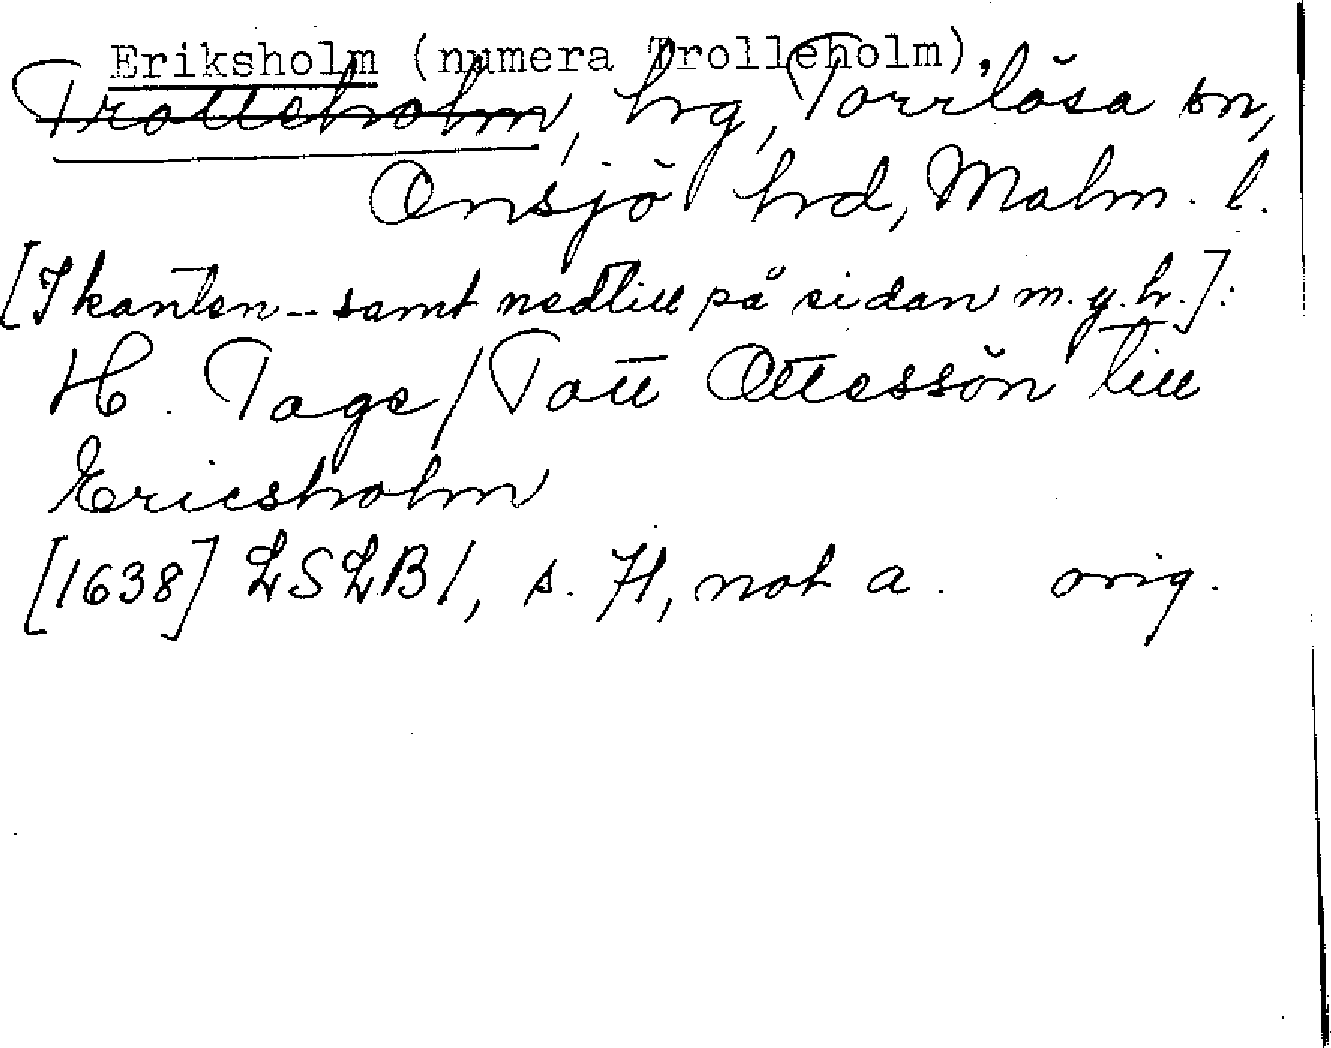 Eriksholm (numera Trolleholm),
Trolleholm, hrg, Torrlösa sn,
Onsjö hrd, Malm. l.
[I kanten -- samt nedtill på sidan m.y.h.]:
H. Tage / Tott Ottessön till
Ericsholm
[1638] LSLB1, s. 71, not a. orig.